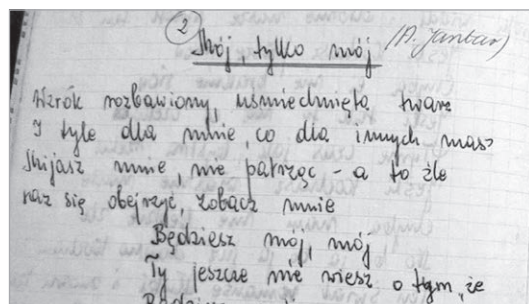 2
Mój, tylko mój (A. Jantar)
Wzrok rozbawiony, uśmiechnięta twarz
I tyle dla mnie, co dla innych masz
Mijasz mnie, nie patrząc - a to źle
raz się obejrzyj, zobacz mnie
Będziesz mój, mój
Ty jeszcze nie wiesz o tym, że